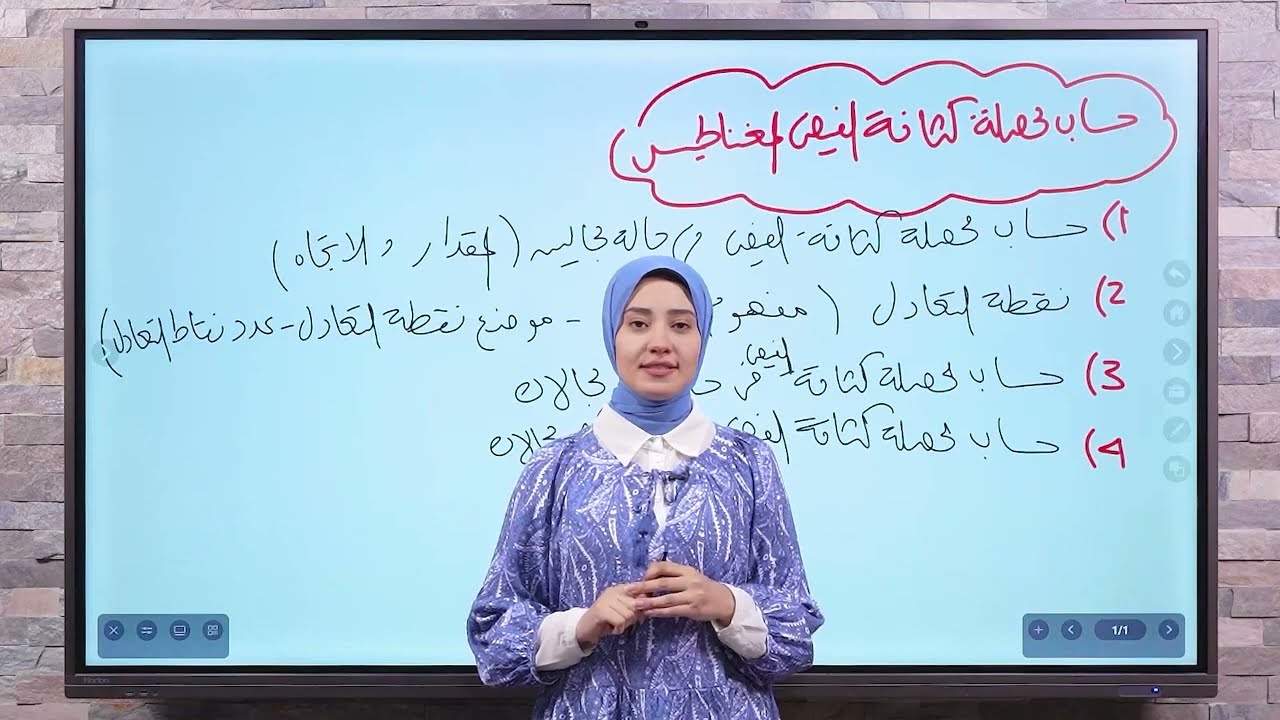 حساب محصلة كثافة الفيض المغناطيسى
1) حساب محصلة كثافة الفيض فى حالة مجالين (المقدار والاتجاه)
2) نقطة التعادل ( - موضع نقطة التعادل - عدد نقاط التعادل)
3) حساب محصلة كثافة الفيض فى مجالات
4) حساب محصلة كثافة الفيض مجالات
1/1
Horion